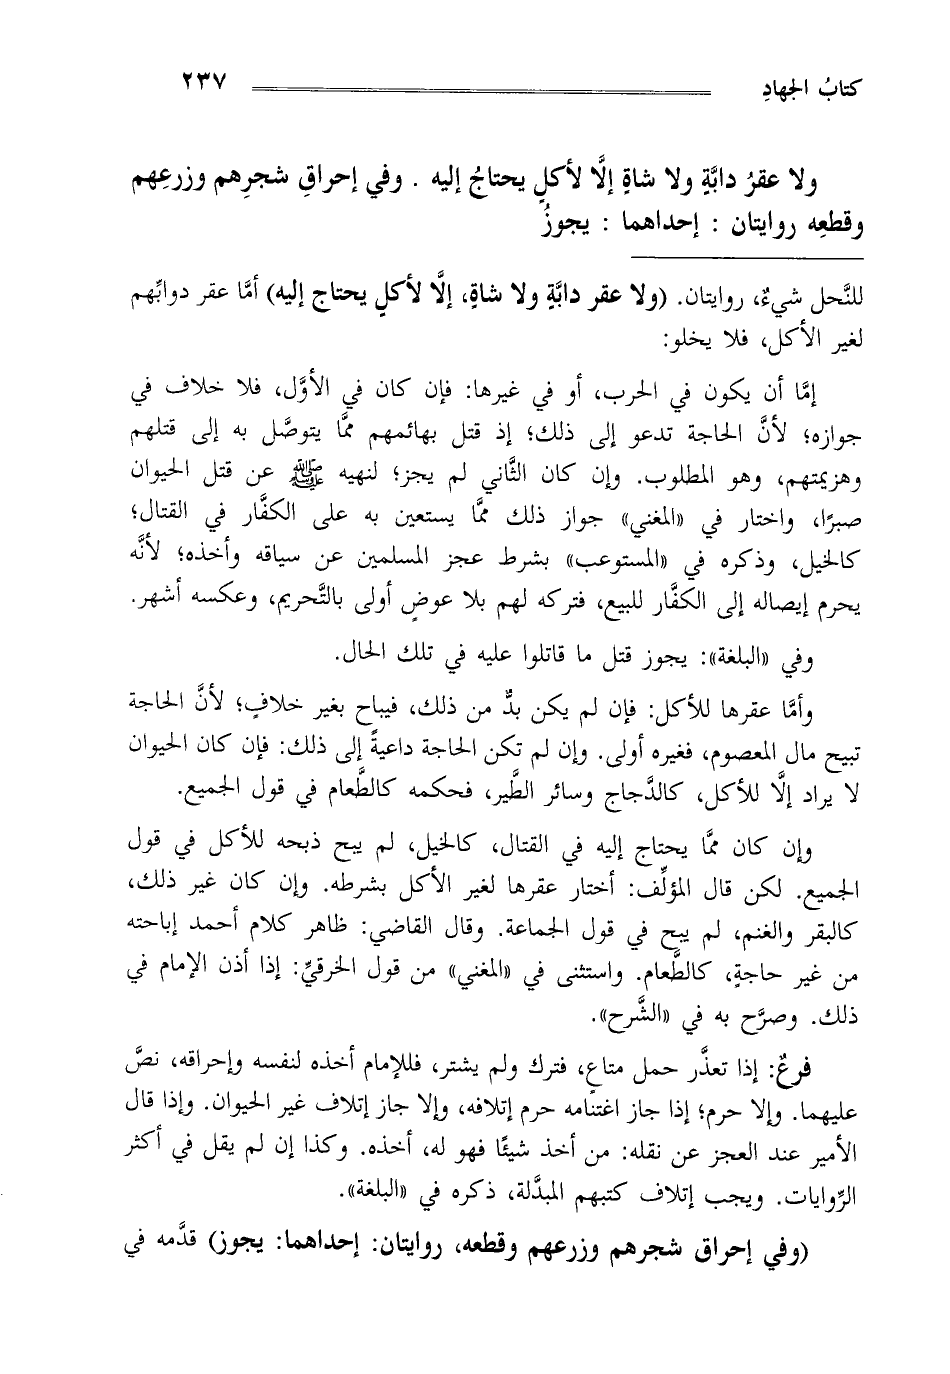 كتابُ الجهادِ ٢٣٧
ولا عقرُ دابَّةٍ ولا شاةٍ إلَّا لأكلٍ يحتاجُ إليه . وفي إحراقِ شجرِهم وزرعِهم
وقطعِه روايتان : إحداهما : يجوزُ
للنَّحل شيءٌ، روايتان. (ولا عقر دابَّةٍ ولا شاةٍ، إلَّا لأكلٍ يحتاج إليه) أمَّا عقر دوابِّهم
لغير الأكل، فلا يخلو:
إمَّا أن يكون في الحرب، أو في غيرها: فإن كان في الأوَّل، فلا خلاف في
جوازه؛ لأنَّ الحاجة تدعو إلى ذلك؛ إذ قتل بهائمهم ممَّا يتوصَّل به إلى قتلهم
وهزيمتهم، وهو المطلوب. وإن كان الثَّاني لم يجز؛ لنهيه ﷺ عن قتل الحيوان
صبرًا، واختار في «المغني» جواز ذلك ممَّا يستعين به على الكفَّار في القتال؛
كالخيل، وذكره في «المستوعب» بشرط عجز المسلمين عن سياقه وأخذه؛ لأنَّه
يحرم إيصاله إلى الكفَّار للبيع، فتركه لهم بلا عوضٍ أولى بالتَّحريم، وعكسه أشهر.
وفي «البلغة»: يجوز قتل ما قاتلوا عليه في تلك الحال.
وأمَّا عقرها للأكل: فإن لم يكن بدٌّ من ذلك، فيباح بغير خلافٍ؛ لأنَّ الحاجة
تبيح مال المعصوم، فغيره أولى. وإن لم تكن الحاجة داعيةً إلى ذلك: فإن كان الحيوان
لا يراد إلَّا للأكل، كالدَّجاج وسائر الطَّير، فحكمه كالطَّعام في قول الجميع.
وإن كان ممَّا يحتاج إليه في القتال، كالخيل، لم يبح ذبحه للأكل في قول
الجميع. لكن قال المؤلِّف: أختار عقرها لغير الأكل بشرطه. وإن كان غير ذلك،
كالبقر والغنم، لم يبح في قول الجماعة. وقال القاضي: ظاهر كلام أحمد إباحته
من غير حاجةٍ، كالطَّعام. واستثنى في «المغني» من قول الخرقيِّ: إذا أذن الإمام في
ذلك. وصرَّح به في «الشَّرح».
فرعٌ: إذا تعذَّر حمل متاعٍ، فترك ولم يشتر، فللإمام أخذه لنفسه وإحراقه، نصَّ
عليهما. وإلا حرم؛ إذا جاز اغتنامه حرم إتلافه، وإلا جاز إتلاف غير الحيوان. وإذا قال
الأمير عند العجز عن نقله: من أخذ شيئًا فهو له، أخذه. وكذا إن لم يقل في أكثر
الرِّوايات. ويجب إتلاف كتبهم المبدَّلة، ذكره في «البلغة».
(وفي إحراق شجرهم وزرعهم وقطعه، روايتان: إحداهما: يجوز) قدَّمه في